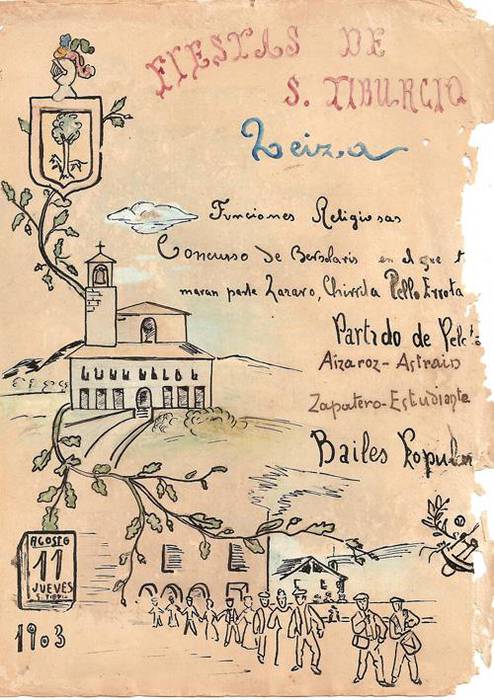 FIESTAS DE
S. TIBURCIO
Leiza
Funciones Religiosas
Concurso de Bersolaris en el que t
maran parte Zazaro, Chirrita Pello Errota
Partido de Pelota
Aizaroz-Astrain
Zapatero-Estudiante
Bailes Popular
AGOSTO
11
JUEVES
1903